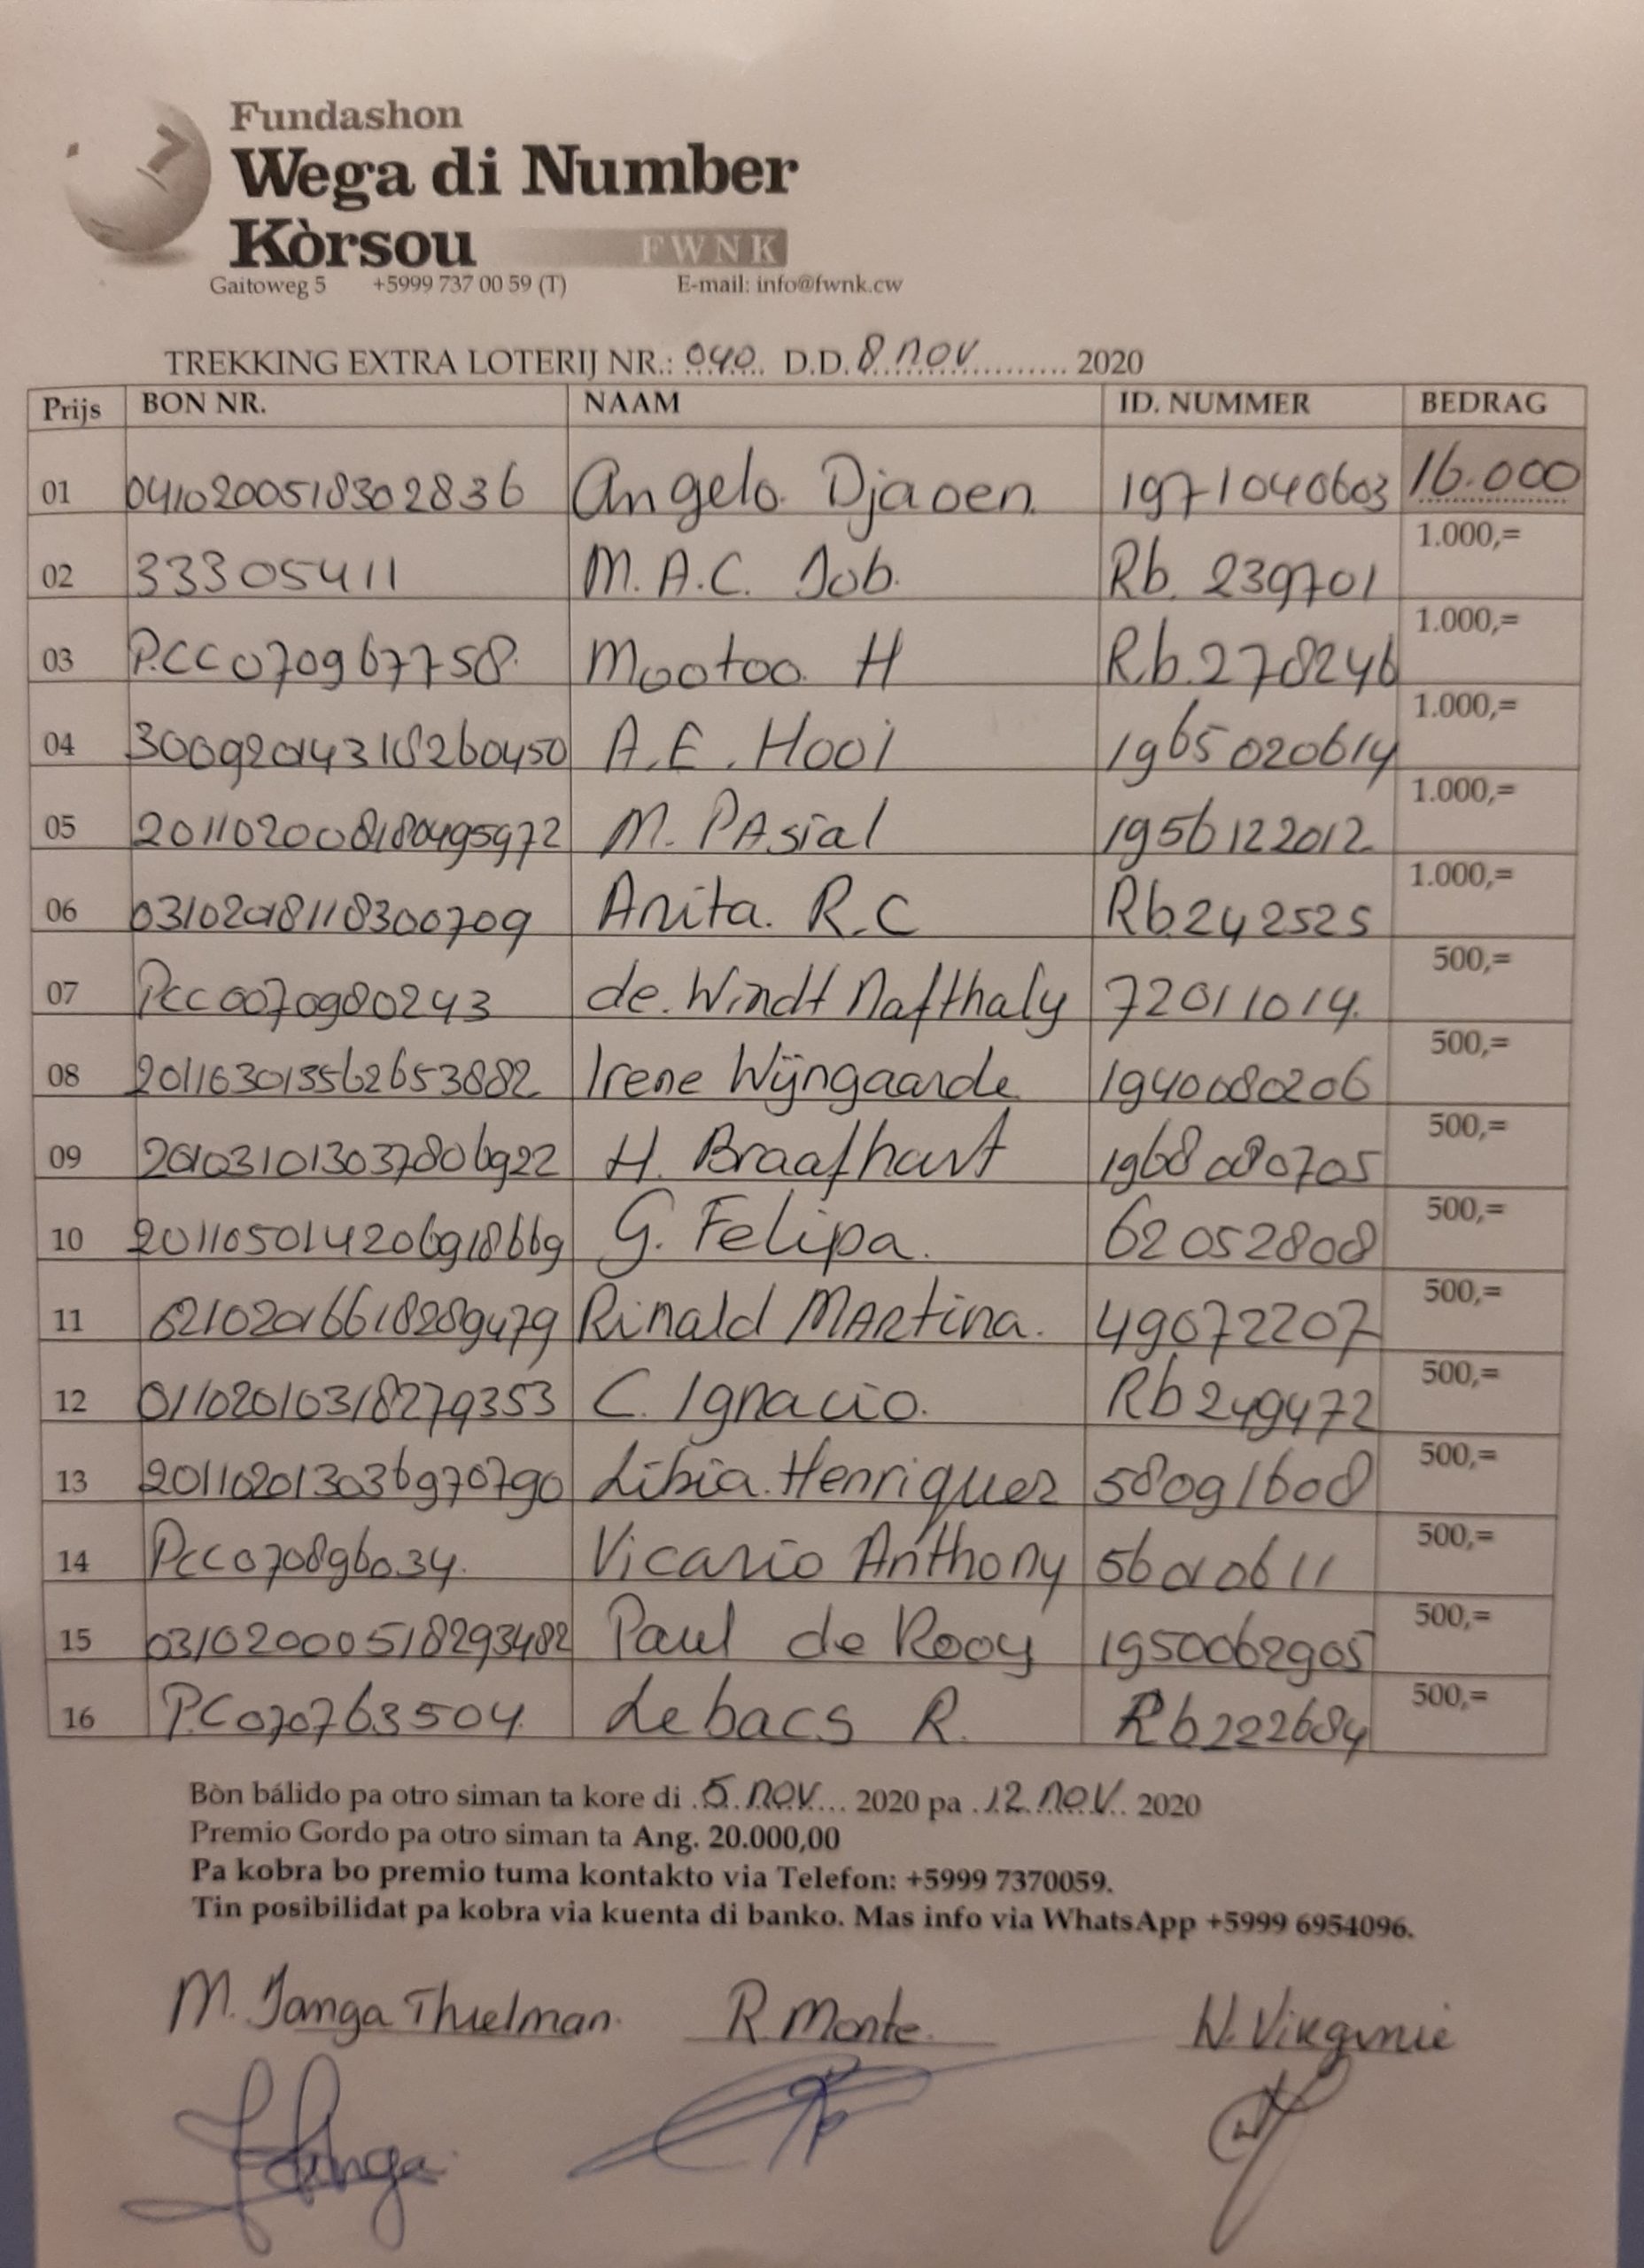 Fundashon
Wega di Number
Kòrsou FWNK
Gaitoweg 5 +5999 737 00 59 (T) E-mail: info@fwnk.cw
TREKKING EXTRA LOTERIJ NR.: 040 D.D. 8 nov 2020
Prijs BON NR. NAAM ID. NUMMER BEDRAG
01 0410200518302836 Angelo Djaoen 1971040603 16.000
02 33305411 M.A.C. Job. Rb. 239701 1.000,=
03 PCC070967758 Mootoo H Rb.278246 1.000,=
04 30092014318260450 A.E. Hooi 1965020614 1.000,=
05 201102008180495972 M. PAsial 1956122012 1.000,=
06 03102018118300709 Anita. R.C Rb242525 1.000,=
07 PCC0070980243 de. Windt Nafthaly 72011014. 500,=
08 2011030135562653882 Irene Wijngaarde 1940080206 500,=
09 201031013037806922 H. Braafhart 1968080705 500,=
10 201105014206918669 G. Felipa. 62052808 500,=
11 02102016618289479 Rinald MARtina. 49072207 500,=
12 01102010318279353 C. Ignacio. Rb249472 500,=
13 201102013036970790 Libia. Henriquez 58091608 500,=
14 PCC070896034. Vicario Anthony 56010611 500,=
15 03102000518293482 Paul de Rooy 1950062905 500,=
16 P.C070763504. Lebacs R. Rb222684 500,=
Bòn bálido pa otro siman ta kore di 5 nov 2020 pa 12 nov. 2020
Premio Gordo pa otro siman ta Ang. 20.000,00
Pa kobra bo premio tuma kontakto via Telefon: +5999 7370059.
Tin posibilidat pa kobra via kuenta di banko. Mas info via WhatsApp +5999 6954096.
M. Janga Thielman. R. Monte. N. Virginie